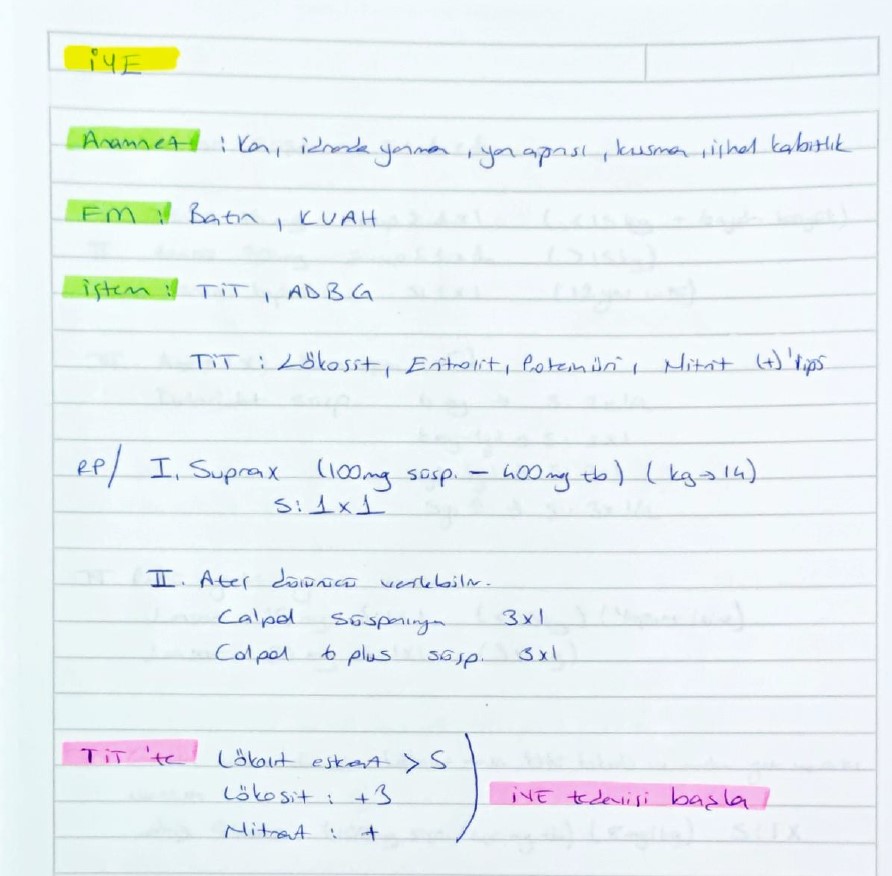 İYE
Anamnez : Kan, idrarda yanma, yan ağrısı, kusma, ishal kabızlık
FM : Batın, KVAH
İstem : TİT, ADBG
TİT : Lökosit, Eritrosit, Proteinüri, Nitrit (+)'liği
RP/ I. Suprax (100mg süsp. – 400mg tb) (kg→14)
S: 1x1
II. Ateş düşürücü verilebilir.
Calpol süspansiyon 3x1
Calpol 6 plus süsp. 3x1
TİT'te Lökosit esteraz > 5
Lökosit : +3
Nitrat : +
İYE tedavisi başla